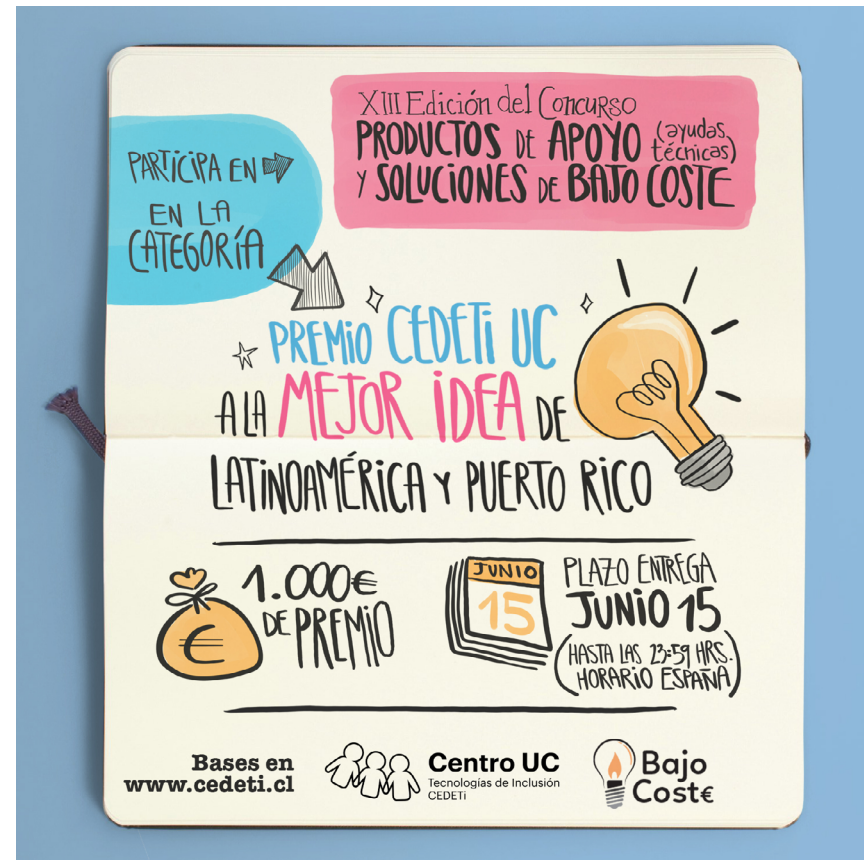 XIII Edición del Concurso
PRODUCTOS DE APOYO (ayudas técnicas)
Y SOLUCIONES DE BAJO COSTE
PARTICIPA EN
EN LA
CATEGORÍA
PREMIO CEDETi UC
A LA MEJOR IDEA DE
LATINOAMÉRICA Y PUERTO RICO
1.000€
DE PREMIO
JUNIO
15
PLAZO ENTREGA
JUNIO 15
(HASTA LAS 23:59 HRS.
HORARIO ESPAÑA)
€
Bases en
www.cedeti.cl
Centro UC
Tecnologías de Inclusión
CEDETi
Bajo
Cost€